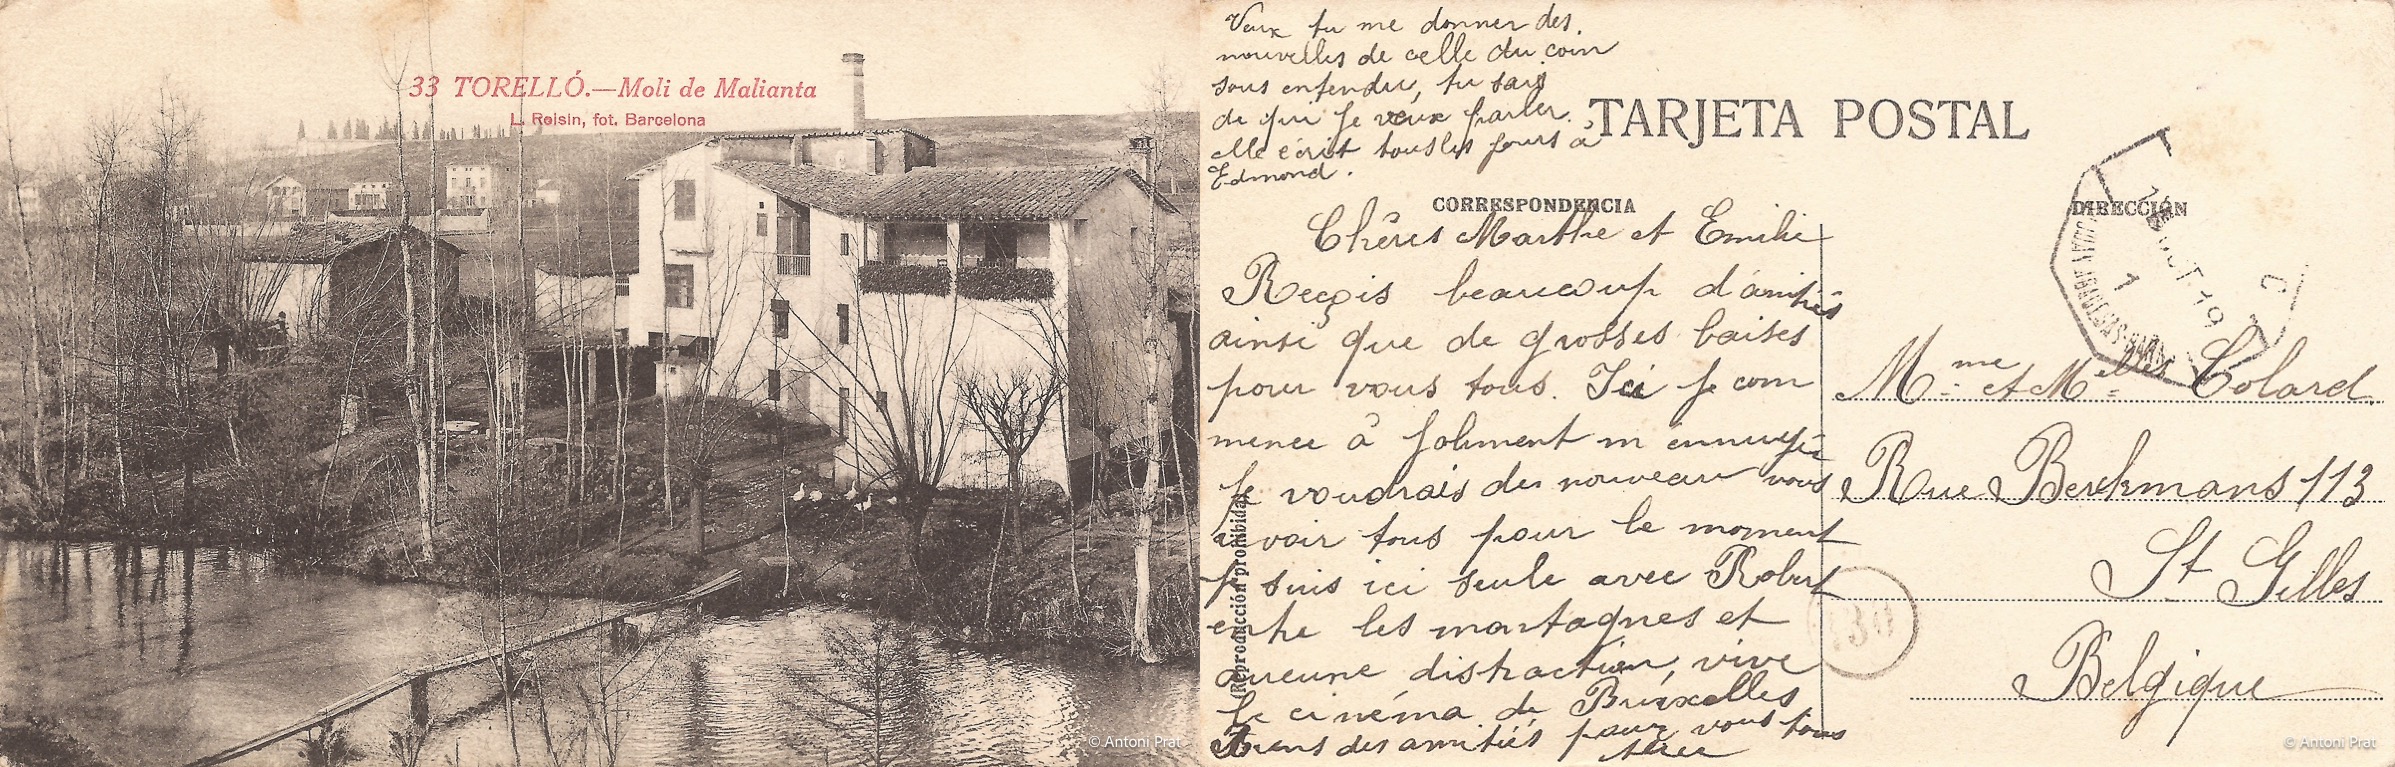 33 TORELLÓ.—Moli de Malianta
L. Roisin, fot. Barcelona
© Antoni Prat
Veux tu me donner des
nouvelles de celle du coin
sous entendu, tu sais
de qui je veux parler.
elle écrit tous les jours à
Edmond.
TARJETA POSTAL
CORRESPONDENCIA
DIRECCIÓN
Chères Marthe et Emilie
Reçois beaucoup d'amitiés
ainsi que de grosses baises
pour vous tous. Ici je com
mence à joliment m ennuyé
je voudrais du nouveau vous
voir tous pour le moment
je suis ici seule avec Robert
entre les montagnes et
aucune distraction, vive
le cinéma de Bruxelles
des amitiés pour vous tous
(Reproducción prohibida)
Mme et Melles Colard.
Rue Berckmans 113
St Gilles
Belgique
© Antoni Prat